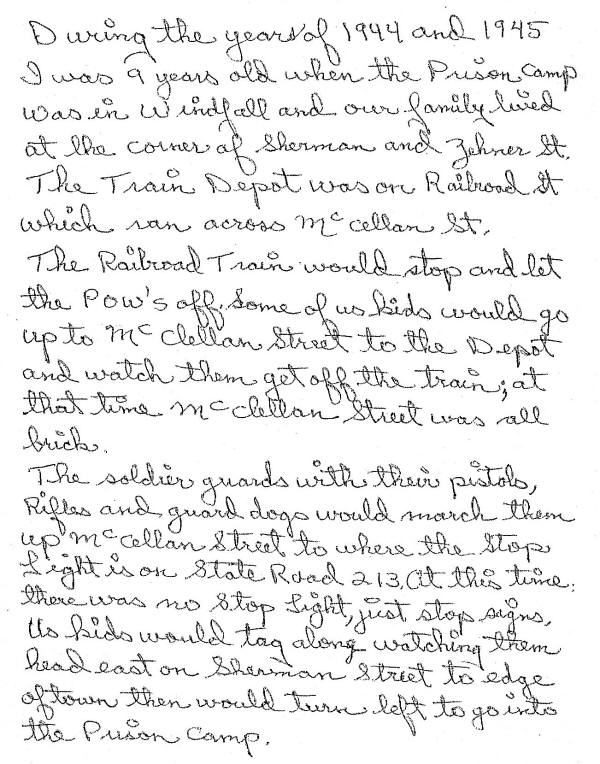 During the years of 1944 and 1945
I was 9 years old when the Prison Camp
was in Windfall and our family lived
at the corner of Sherman and Zehner St.
The Train Depot was on Railroad St
which ran across McCellan St.
The Railroad Train would stop and let
the POW's off. Some of us kids would go
up to McClellan Street to the Depot
and watch them get off the train; at
that time McClellan Street was all
brick.
The soldier guards with their pistols,
Rifles and guard dogs would march them
up McCellan Street to where the Stop
Light is on State Road 213. At this time
there was no Stop Light, just stop signs.
Us kids would tag along watching them
head east on Sherman Street to edge
of town then would turn left to go into
the Prison Camp.